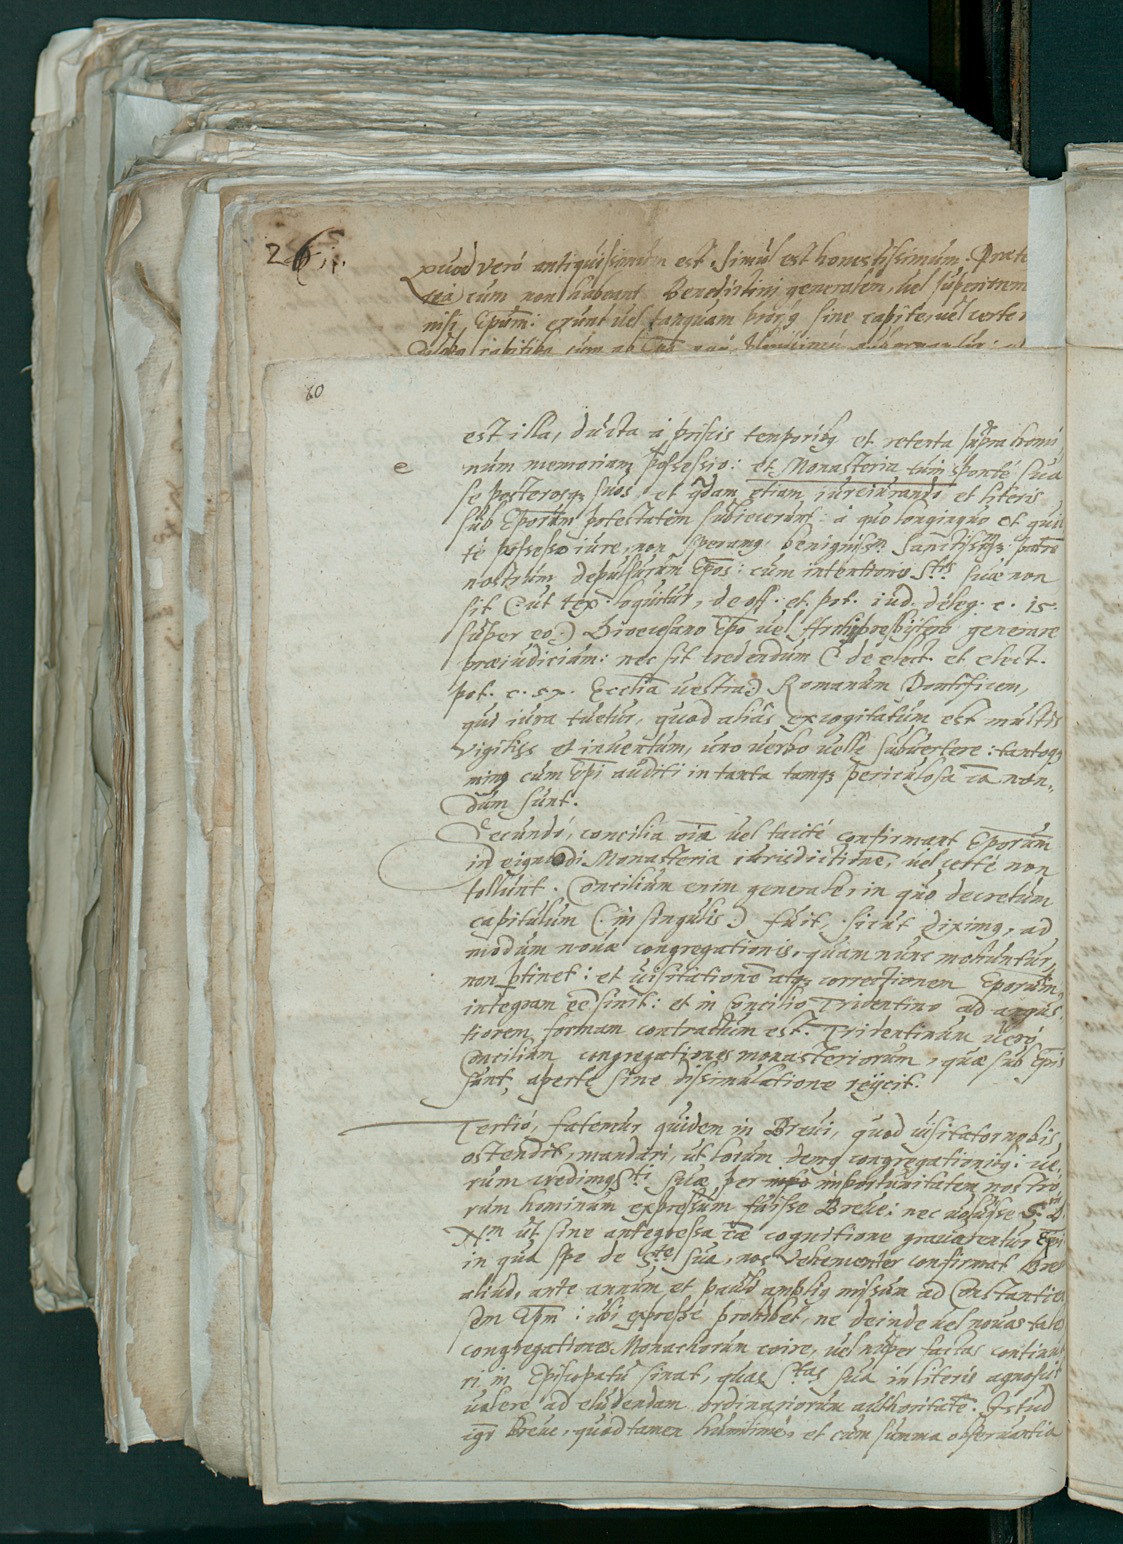 26
quod veró antiquissimum est simùl est honestissimum. Præte
rea cùm non habeant Benedictini generalem, vel superiorem
nisi Epũm: erunt vel tanquam sine capite, vel certe
80
est illa, dùcta à priscis temporibꝫ et retenta sùpra homi
e nùm memoriam possessio: et Monasteria tùm sponté sua
se posterosqꝫ suos et q̃dam etiam iureiurando et literis
sùb Eporùm potestatem subiecerùnt: à quo longinquo et qui
té possesso iure, non benigniss. Sanctissꝫ patrẽ
nostrùm depulsùrùm Epos: cùm intentionis Stis suæ non
sit (ut tex. loquitur, de off. et pot. iud. deleg. c. 15.
sùper eo) Dioecesano Epo vel Archipresbÿtero generare
præiùdiciùm: nec sit credendùm (de elect. et elect.
pot. c. Ecclia vestra) Romanùm Pontificem,
qui iùra tùetur, quod aliàs excogitatùm est mùltis
vigilijs et inventùm, uno verbo velle sùbvertere: tantoqꝫ
minꝰ cùm Epi aùditi in tanta tamqꝫ pericùlosa cã non„
dùm sùnt.
Secùndó, concilia oĩa vel tacité confirmant Eporùm
in eiqmodi Monasteria iùrisdictionẽ, vel certé non
tollùnt. Conciliùm enim generale, in qùo decretùm
capitùlùm (in singùlis) fùit, sicùt diximꝰ, ad
modùm novæ congregationis, quam nùnc moliùntùr,
non ptinet: et visitationẽ atqꝫ correctionem Eporùm
integram eẽ sinit: et in Concilio Tridentino ad angus„
tiorem formam contractùm est. Tridentinùm veró
Conciliùm congregationes monasteriorùm, quæ sùb Epis
sùnt, aperté sine dissimùlatione reijcit.
Tertió, fatemùr quidem in Brevi, quod visitator nobis
ostendit, mandari, ùt locùm demꝰ congregationibꝫ: ve„
rùm credimꝰ Sti sùæ per importùnitatem nostro
rùm hominùm expressùm fùisse Breve: nec volùisse S. D.
N.m ùt sine antegressa cãæ cognitione gravarentùr Epi
in qua spe de Ste sùa, nos vehementer confirmat Bre
aliùd, ante annùm et paùlo ampliꝰ missùm ad Constantien
sem Epm: ùbi expressé prohibet, ne deinde vel novas tales
congregationes Monachorùm coire, vel nùper factas continùa
ri in Episcopatù sinat, quas Stas sùa in literis agnoscit
valere ad elùdendam ordinariorùm aùthoritatẽ. Istùd
igr Breve, quod tamen hùmilimé, et cùm sùmma observantia